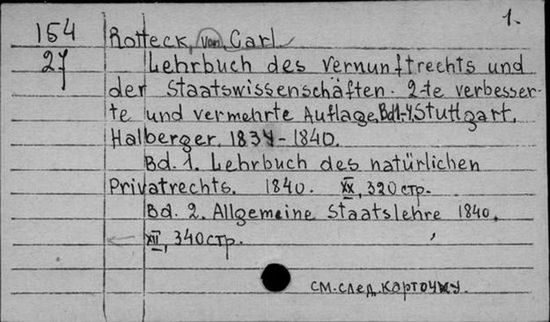 1.
154 Rotteck, von Carl
27 Lehrbuch des Vernunftrechts und
der Staatswissenschäften. 2-te verbesser-
te und vermehrte Auflage, Bd1-4, Stuttgart,
Halberger, 1834-1840.
Bd. 1. Lehrbuch des natürlichen
Privatrechts. 1840. XX, 320 стр.
Bd. 2. Allgemeine Staatslehre 1840.
XII, 340 стр.
см. след. карточку.